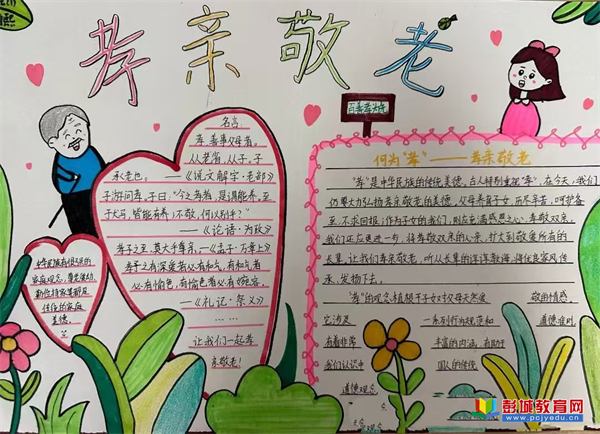 孝亲敬老
名言
孝,善事父母者。
从老省,从子,子
承老也。——《说文解字·老部》
子游问孝,子曰:"今之孝者,是谓能养,至
于犬马,皆能有养;不敬,何以别乎?"
——《论语·为政》
孝子之至,莫大乎尊亲。——《孟子·万章上》
孝子之有深爱者必有和气,有和气者
必有愉色,有愉色者必有婉容。
——《礼记·祭义》
……
让我们一起孝
亲敬老!
家庭观念,尊老爱幼、
美德。
百善孝为先
何为"孝"——孝亲敬老
"孝"是中华民族的传统美德,古人特别重视"孝",在今天,我们
仍要大力弘扬孝亲敬老的美德。父母养育子女,历尽辛苦,呵护备
至,不求回报;作为子女的我们,则应充满感恩之心,孝敬双亲。
我们还应更进一步,将孝敬双亲的心亲,扩大到敬爱所有的
长辈,让我们孝亲敬老,听从长辈的谆谆教诲,将优良家风传
承、发扬下去。
"孝"的观念植根于子女对父母天然爱 敬的情感
它涉及 一系列行为规范和 道德准则,
有着非常 丰富的内涵,有助于
我们认识中 国人的传统
道德观念
彭城教育网
www.pcjyedu.cn